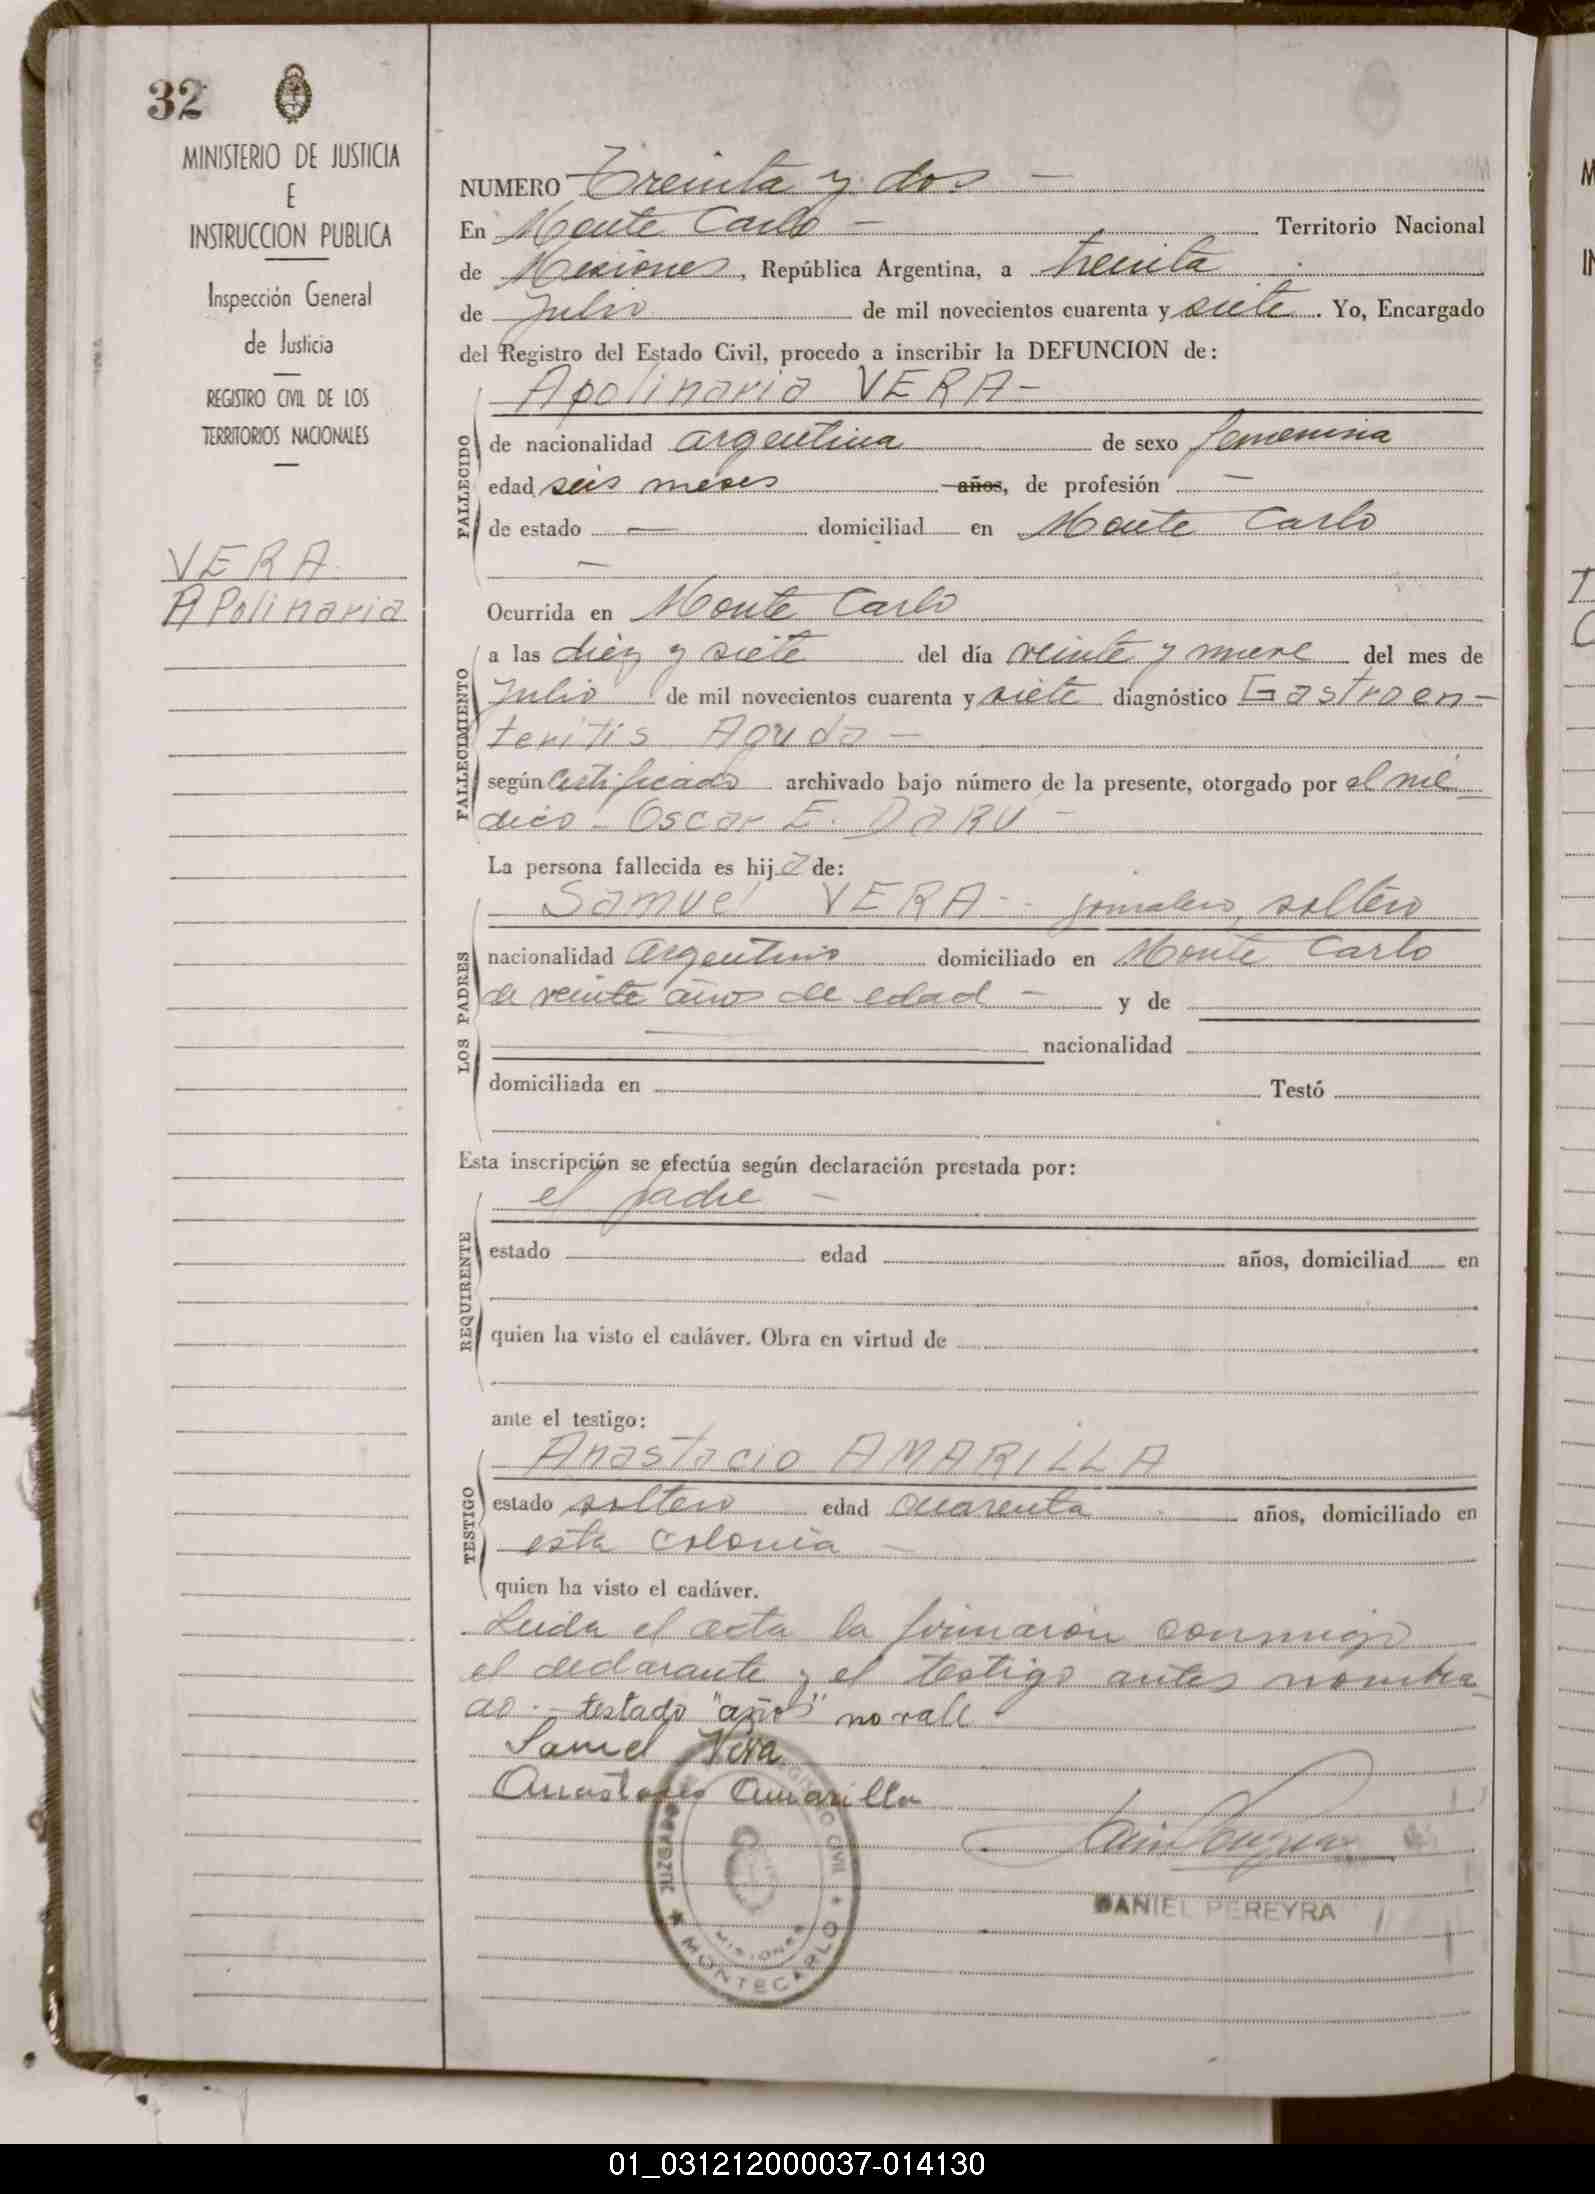 32
MINISTERIO DE JUSTICIA
E
INSTRUCCION PUBLICA
Inspección General
de Justicia
REGISTRO CIVIL DE LOS
TERRITORIOS NACIONALES
VERA
APolinaria
NUMERO Treinta y dos —
En Monte Carlo — Territorio Nacional
de Misiones, República Argentina, a treinta
de Julio de mil novecientos cuarenta y siete. Yo, Encargado
del Registro del Estado Civil, procedo a inscribir la DEFUNCION de:
Apolinaria VERA —
FALLECIDO
de nacionalidad argentina de sexo femenina
edad seis meses años, de profesión —
de estado — domiciliad en Monte Carlo
—
Ocurrida en Monte Carlo
FALLECIMIENTO
a las diez y siete del día veinte y nueve del mes de
Julio de mil novecientos cuarenta y siete diagnóstico Gastroen-
teritis Aguda —
según Certificado archivado bajo número de la presente, otorgado por el mé-
dico - Oscar E. DARU —
La persona fallecida es hija de:
Samuel VERA - jornalero, soltero
LOS PADRES
nacionalidad Argentino domiciliado en Monte Carlo
de veinte años de edad — y de
nacionalidad
domiciliada en Testó
Esta inscripción se efectúa según declaración prestada por:
el padre —
REQUIRENTE
estado edad años, domiciliad en
quien ha visto el cadáver. Obra en virtud de
ante el testigo:
Anastacio AMARILLA
TESTIGO
estado soltero edad cuarenta años, domiciliado en
esta colonia —
quien ha visto el cadáver.
Leida el acta la firmaron conmigo
el declarante y el testigo antes nombra-
do. - testado "años" no vale
Samuel Vera
Anastacio Amarilla
REGISTRO CIVIL
MISIONES
★ MONTECARLO ★
DANIEL PEREYRA
01_031212000037-014130